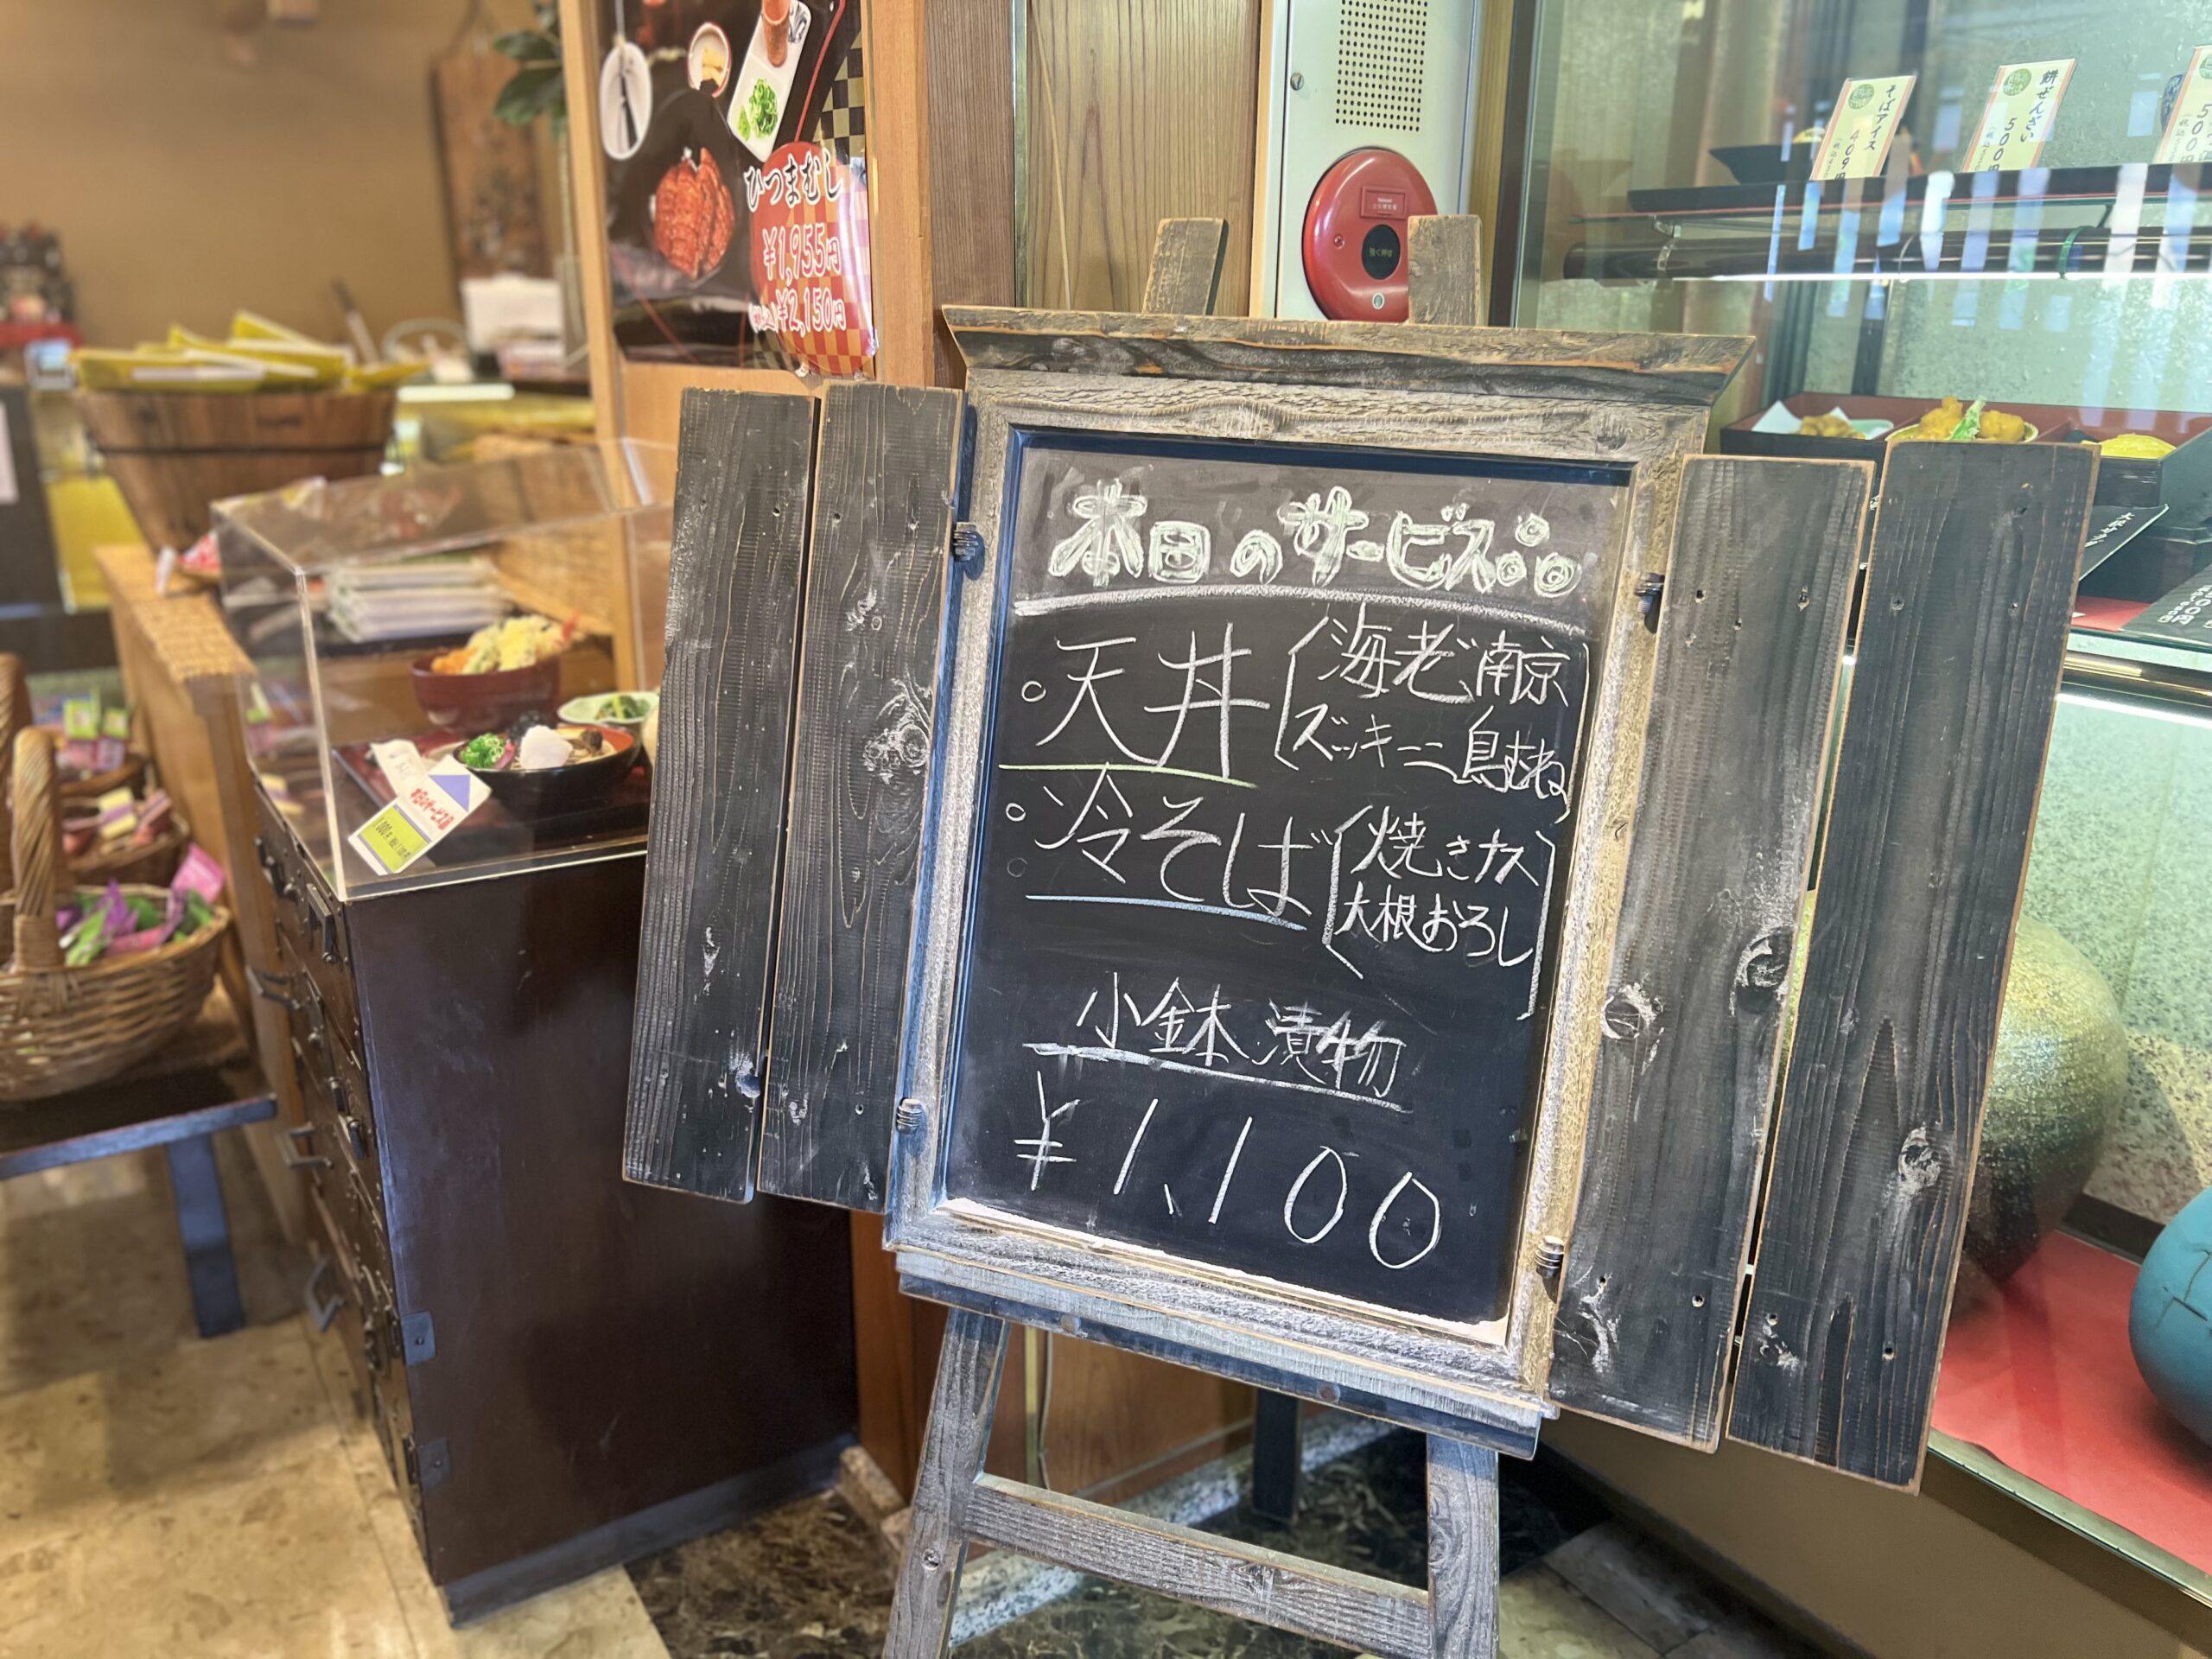 本日のサービス
○天丼
海老、南京
ズッキーニ 鳥むね
○冷そば
焼きナス
大根おろし
小鉢 漬物
¥1,100
ひつまむし
¥1,955円
¥2,150円
そばアイス
餅ぜんざい
500円
強く押す